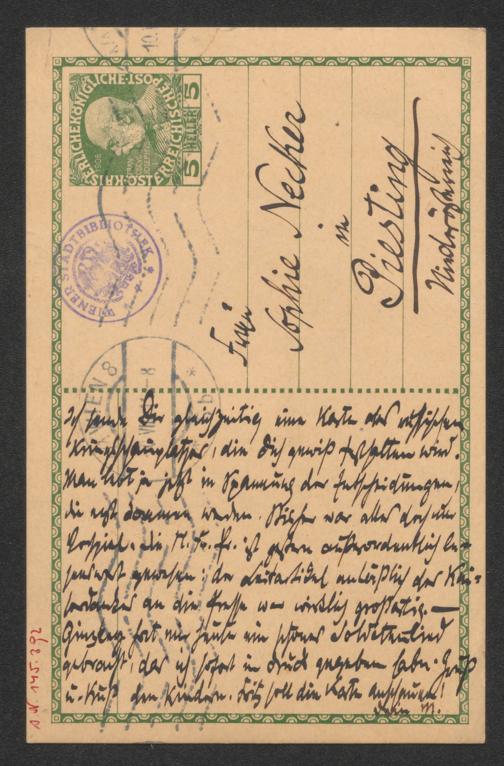 KAISERLICHE KÖNIGLICHE ÖSTERREICHISCHE POST
5 HELLER 5
WIENER STADTBIBLIOTHEK
WIEN 8
Frau
Sophie Necker
in
Piesting
Niederösterreich
Ich sende Dir gleichzeitig eine Karte des russischen
Kriegsschauplatzes, die Dich gewiß festhalten wird.
Man lebt ja jetzt in Spannung der Entscheidungen,
die erst kommen werden. Bisher war alles doch nur
Vorspiel. Die N. Fr. Pr. ist gestern außerordentlich le-
senswert gewesen; der Leitartikel anläßlich des
an die Presse war wirklich großartig. —
Ginzkey hat mir heute ein schönes Soldatenlied
gebracht, das ich sofort in Druck gegeben habe. Gruß
u. Kuß den Kindern. Fritz soll die Karte anschauen!
Dein M.
J.N. 145.392